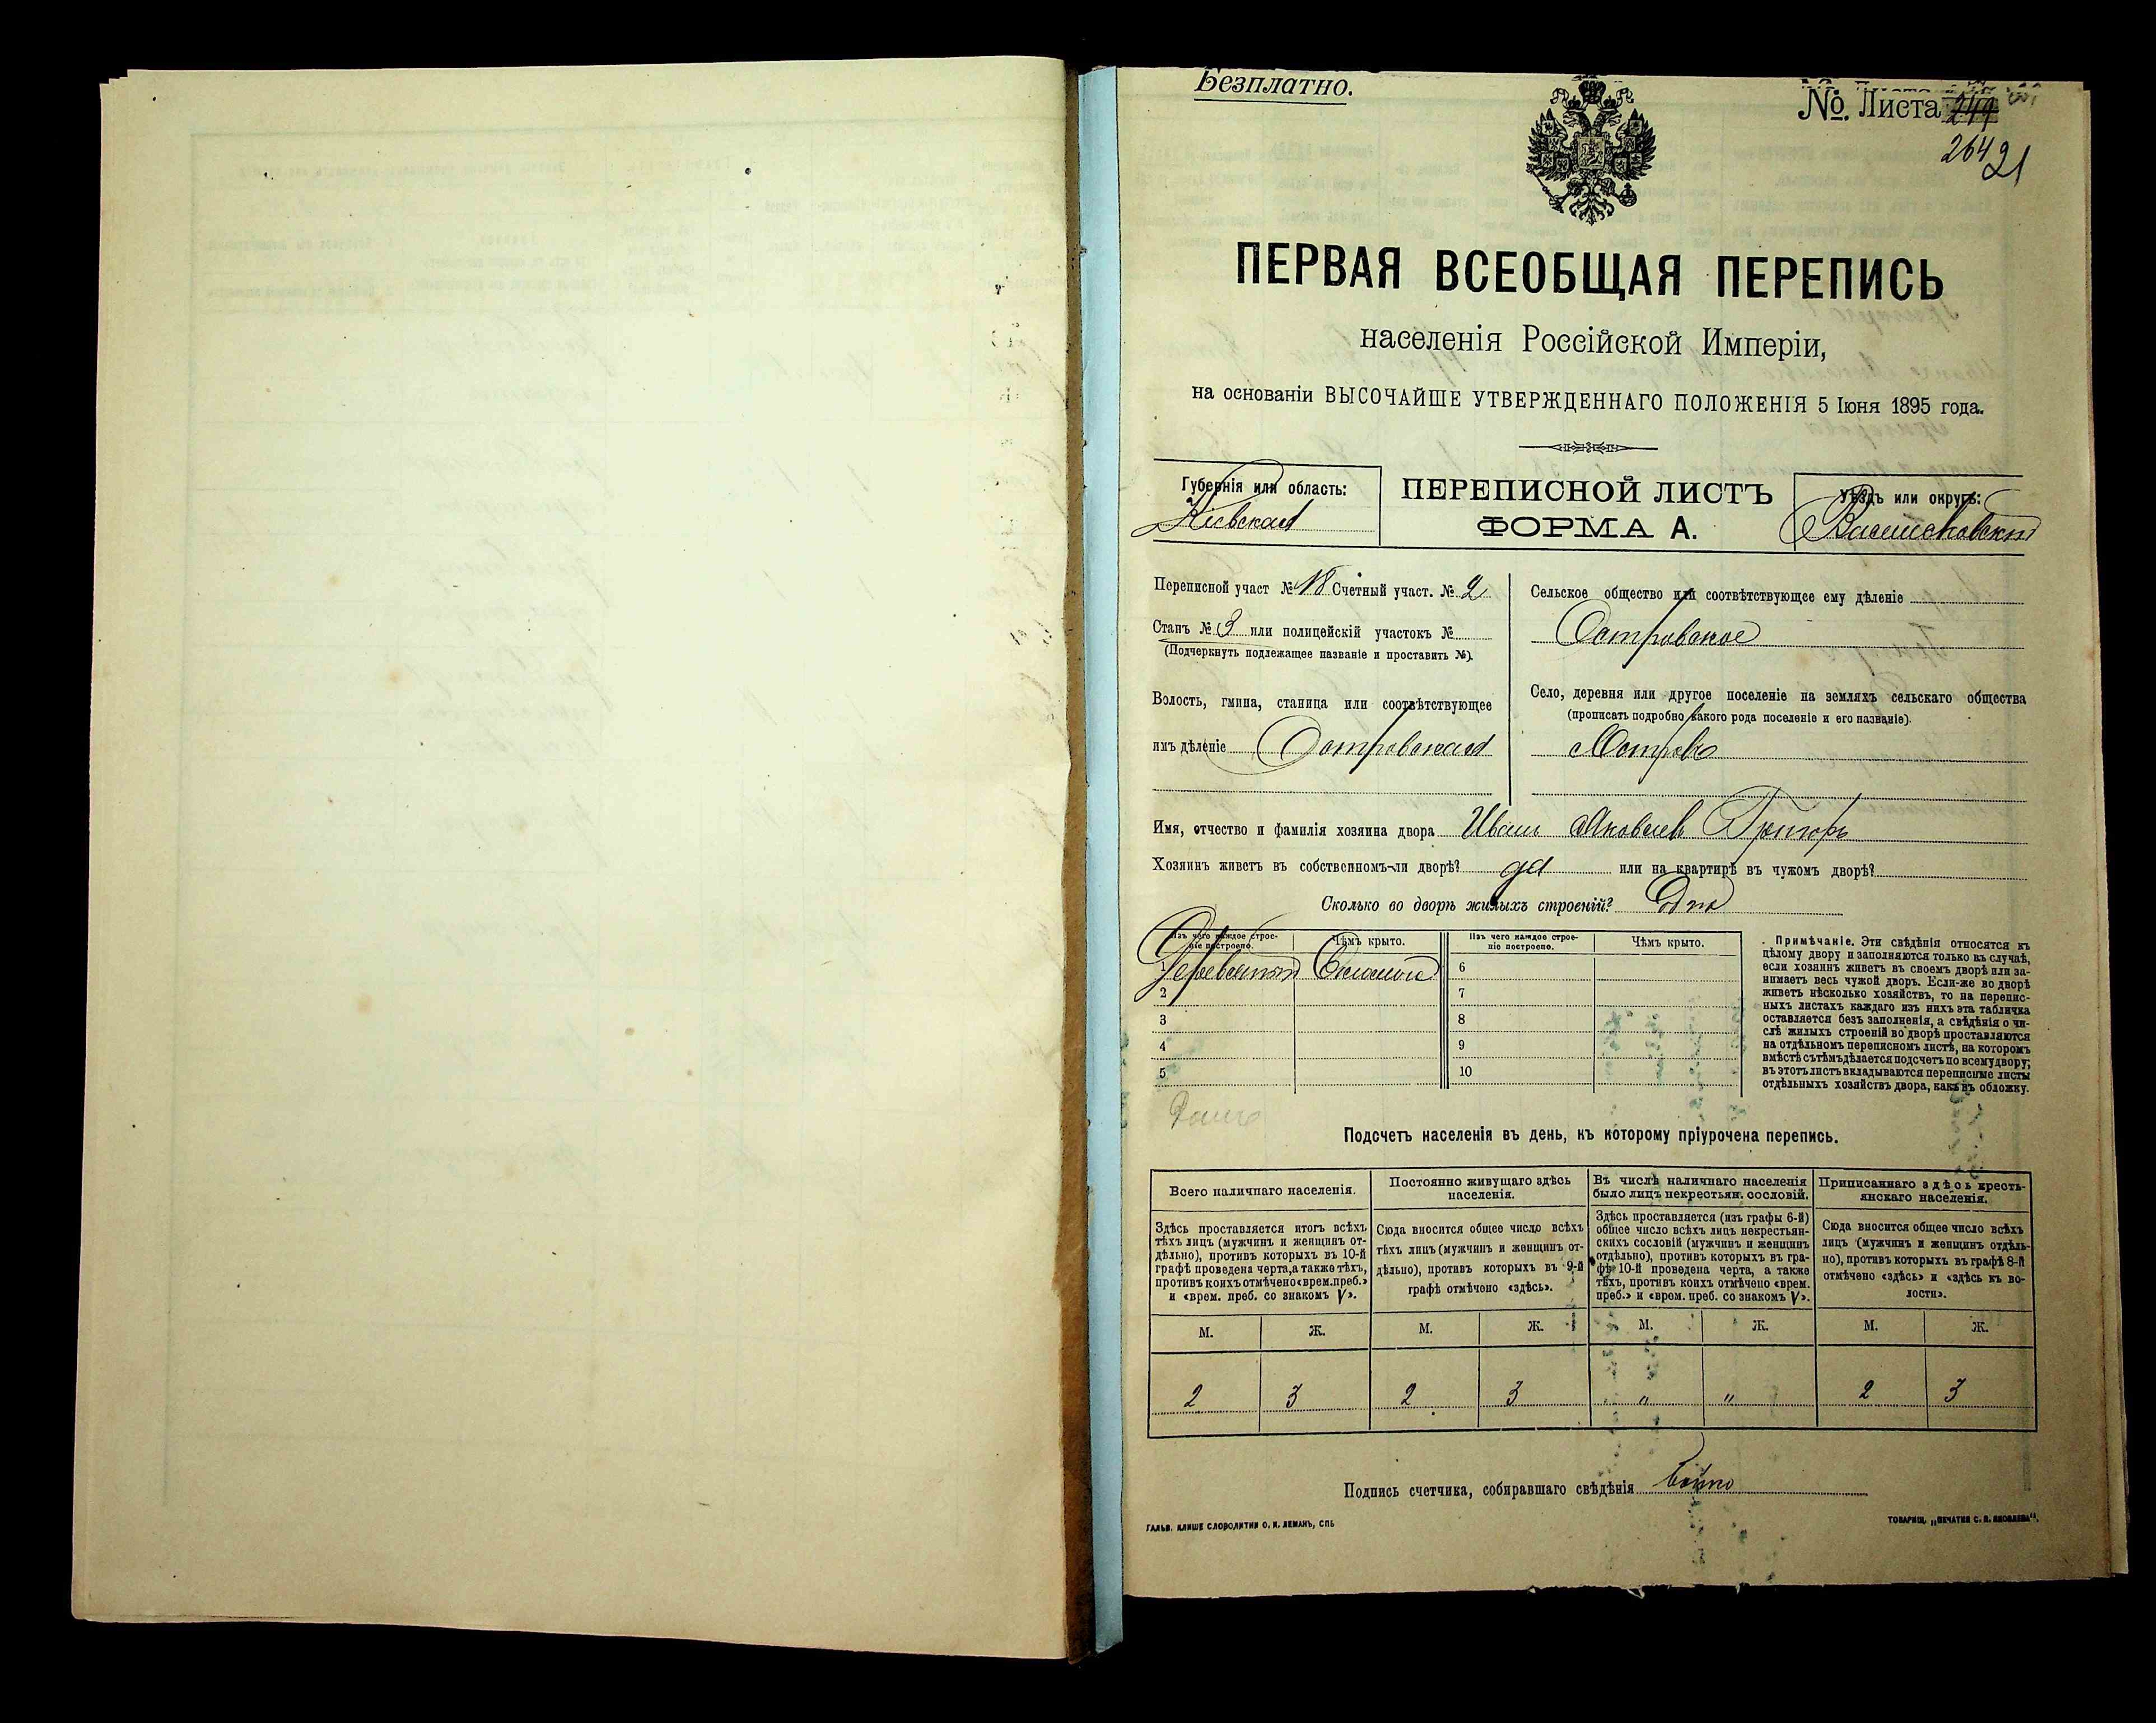 Безплатно.
№. Листа 244
264 21
ПЕРВАЯ ВСЕОБЩАЯ ПЕРЕПИСЬ
населенія Россійской Имперіи,
на основаніи ВЫСОЧАЙШЕ УТВЕРЖДЕННАГО ПОЛОЖЕНІЯ 5 Іюня 1895 года.
Губернія или область:
Кіевская
ПЕРЕПИСНОЙ ЛИСТЪ
ФОРМА А.
Уѣздъ или округъ:
Васильковскій
Переписной участ № 18 Счетный участ. № 2
Станъ № 3 или полицейскій участокъ №
(Подчеркнуть подлежащее названіе и проставить №).
Волость, гмина, станица или соотвѣтствующее
имъ дѣленіе Островская
Сельское общество или соотвѣтствующее ему дѣленіе
Островское
Село, деревня или другое поселеніе на земляхъ сельскаго общества
(прописать подробно какого рода поселеніе и его названіе).
Имя, отчество и фамилія хозяина двора Иванъ Яковлевъ
Хозяинъ живетъ въ собственномъ-ли дворѣ? да или на квартирѣ въ чужомъ дворѣ?
Сколько во дворѣ жилыхъ строеній? Одна
Изъ чего каждое строе-
ніе построено.
Чѣмъ крыто.
Изъ чего каждое строе-
ніе построено.
Чѣмъ крыто.
1 Деревянный Соломой 6
2 7
3 8
4 9
5 10
Примѣчаніе. Эти свѣдѣнія относятся къ
цѣлому двору и заполняются только въ случаѣ,
если хозяинъ живетъ въ своемъ дворѣ или за-
нимаетъ весь чужой дворъ. Если-же во дворѣ
живетъ нѣсколько хозяйствъ, то на перепис-
ныхъ листахъ каждаго изъ нихъ эта табличка
оставляется безъ заполненія, а свѣдѣнія о чи-
слѣ жилыхъ строеній во дворѣ проставляются
на отдѣльномъ переписномъ листѣ, на которомъ
вмѣстѣ съ тѣмъ дѣлается подсчетъ по всему двору;
въ этотъ листъ вкладываются переписные листы
отдѣльныхъ хозяйствъ двора, какъ въ обложку.
Подсчетъ населенія въ день, къ которому пріурочена перепись.
Всего наличнаго населенія.
Здѣсь проставляется итогъ всѣхъ
тѣхъ лицъ (мужчинъ и женщинъ от-
дѣльно), противъ которыхъ въ 10-й
графѣ проведена черта, а также тѣхъ,
противъ коихъ отмѣчено «врем. преб.»
и «врем. преб. со знакомъ V».
Постоянно живущаго здѣсь
населенія.
Сюда вносится общее число всѣхъ
тѣхъ лицъ (мужчинъ и женщинъ от-
дѣльно), противъ которыхъ въ 9-й
графѣ отмѣчено «здѣсь».
Въ числѣ наличнаго населенія
было лицъ некрестьян. сословій.
Здѣсь проставляется (изъ графы 6-й)
общее число всѣхъ лицъ некрестьян-
скихъ сословій (мужчинъ и женщинъ
отдѣльно), противъ которыхъ въ гра-
фѣ 10-й проведена черта, а также
тѣхъ, противъ коихъ отмѣчено «врем.
преб.» и «врем. преб. со знакомъ V».
Приписаннаго здѣсь кресть-
янскаго населенія.
Сюда вносится общее число всѣхъ
лицъ (мужчинъ и женщинъ отдѣль-
но), противъ которыхъ въ графѣ 8-й
отмѣчено «здѣсь» и «здѣсь къ во-
лости».
М. Ж. М. Ж. М. Ж. М. Ж.
2 3 2 3 " " 2 3
Подпись счетчика, собиравшаго свѣдѣнія Бойко
ГАЛЬВ. КЛИШЕ СЛОВОЛИТНИ О. И. ЛЕМАНЪ, СПБ
ТОВАРИЩ. „ПЕЧАТНЯ С. П. ЯКОВЛЕВА".